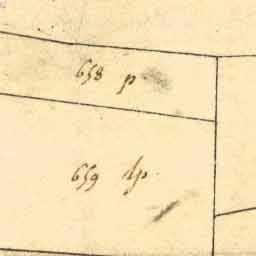 658 p
659 dp